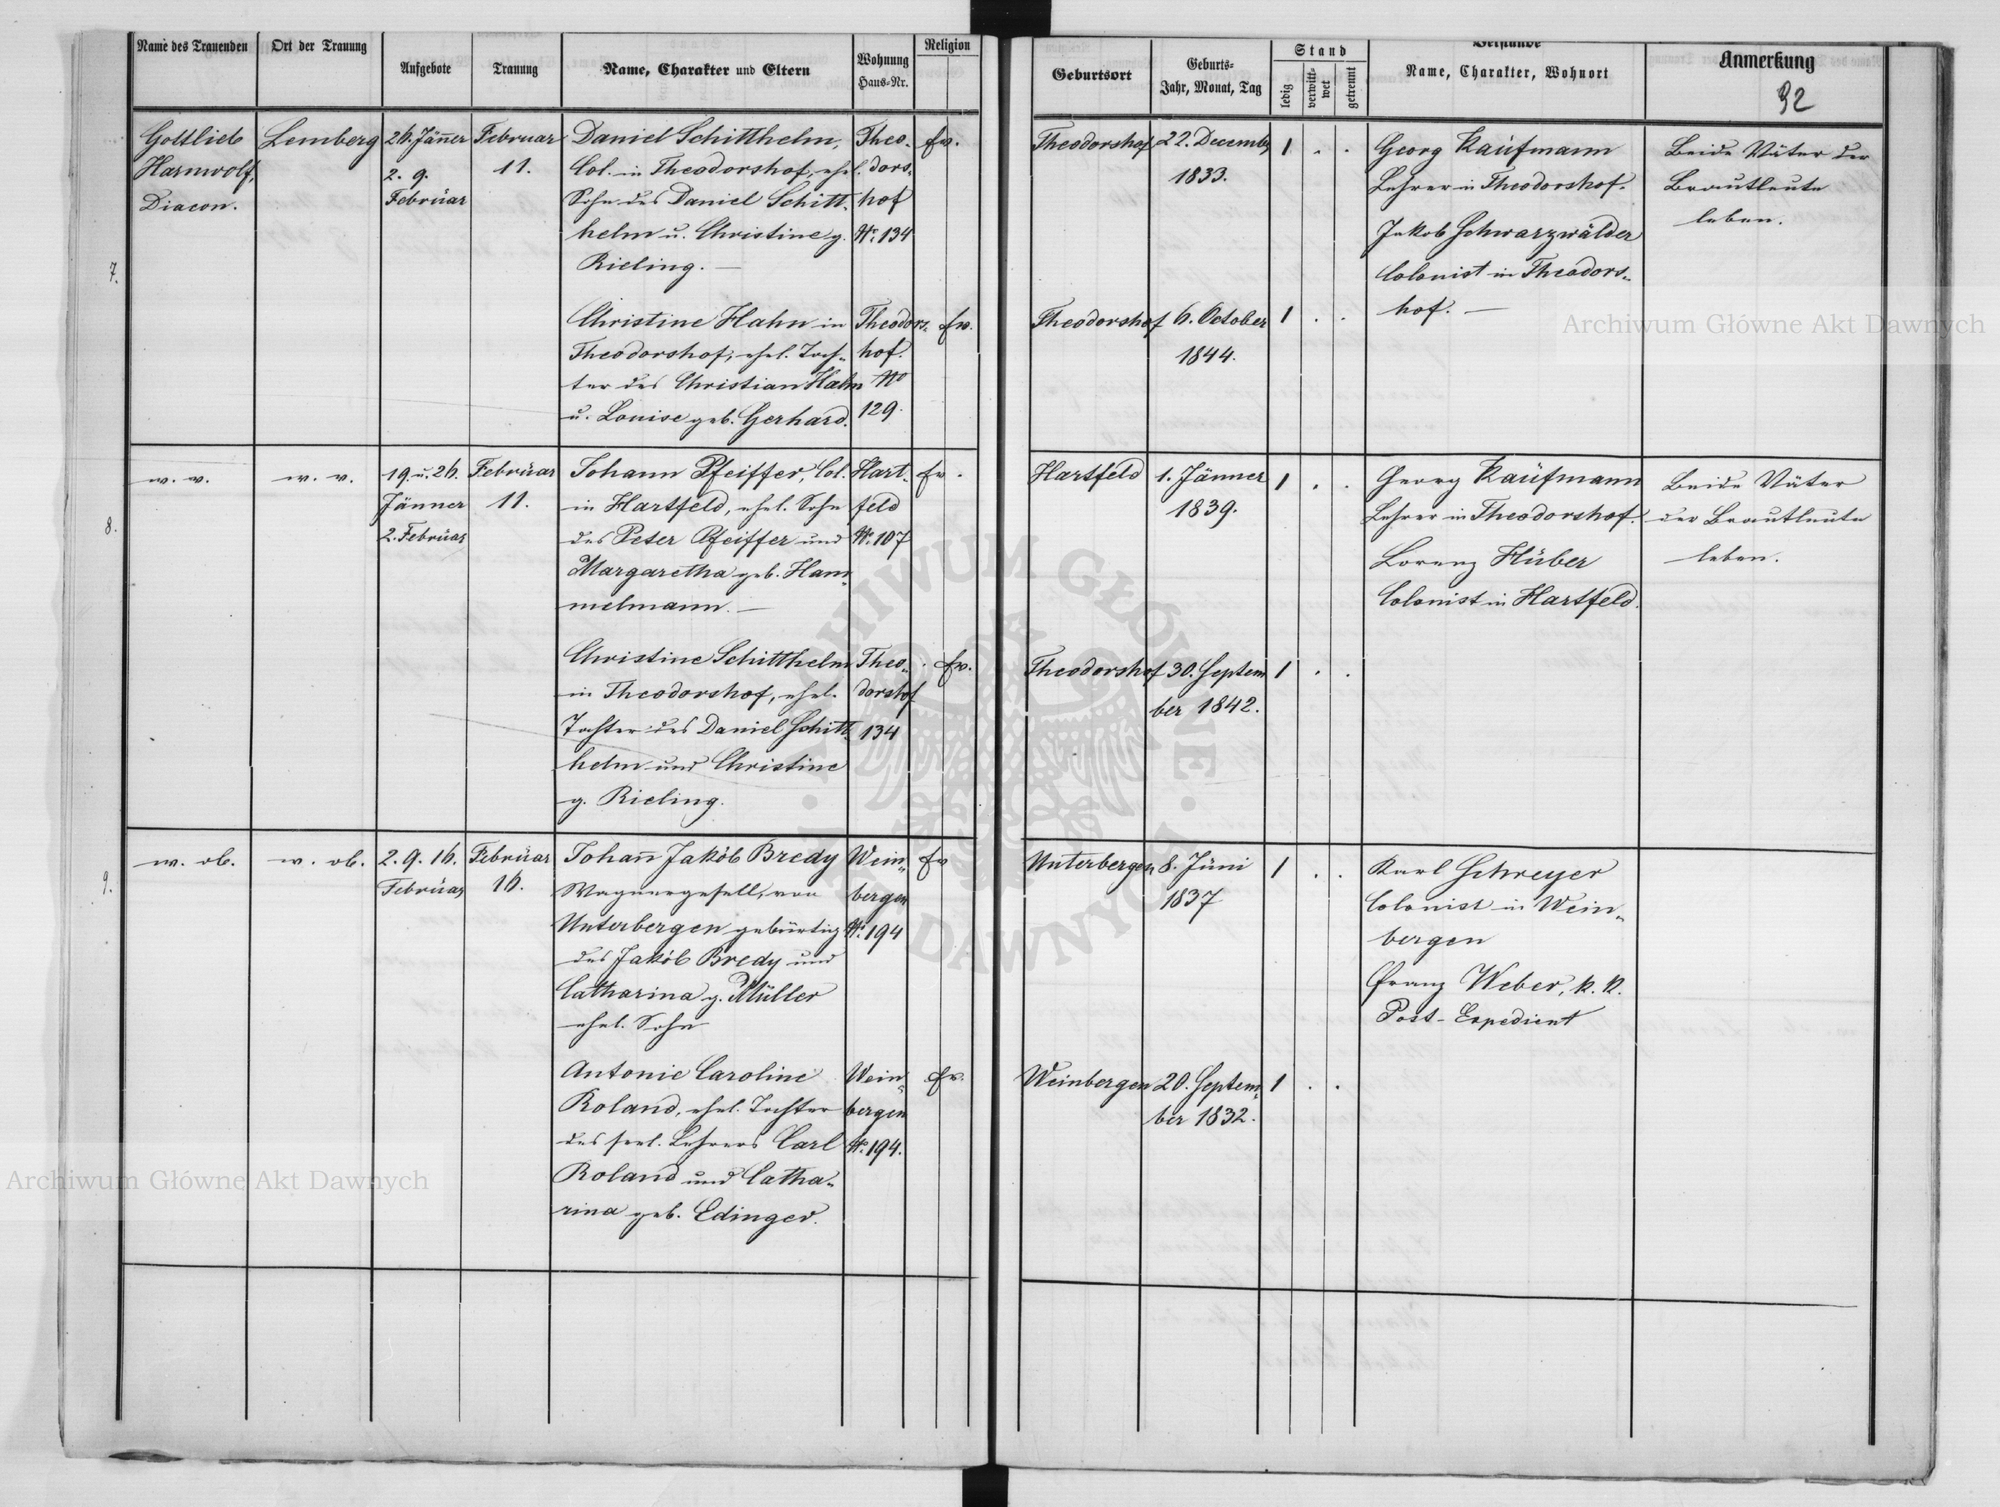 Name des Trauenden
Ort der Trauung
Aufgebote
Trauung
Name, Charakter und Eltern
Wohnung
Haus-Nr.
Religion
Geburtsort
Geburts-
Jahr, Monat, Tag
Stand
ledig
verwitt-
wet
getrennt
Beistände
Name, Charakter, Wohnort
Anmerkung
92
7.
Gottlieb
Harnwolf,
Diacon.
Lemberg
26. Jänner
2. 9.
Februar
Februar
11.
Daniel Schitthelm,
Col. in Theodorshof, ehel.
Sohn des Daniel Schitt-
helm u. Christine g.
Rieling. —
Theo-
dors-
hof
No. 134
Ev.
Theodorshof
22. Decemb
1833.
1 . .
Georg Kaufmann
Lehrer in Theodorshof.
Jakob Schwarzwälder
Colonist in Theodors-
hof. —
Beide Väter der
Brautleute
leben.
Christine Hahn in
Theodorshof, ehel. Toch-
ter des Christian Hahn
u. Louise geb. Gerhard.
Theodors-
hof.
No
129.
Ev.
Theodorshof
6. October
1844.
1 . .
8.
w. v.
w. v.
19. u. 26.
Jänner
2. Februar
Februar
11.
Johann Pfeiffer, Col.
in Hartfeld, ehel. Sohn
des Peter Pfeiffer und
Margaretha geb. Ham-
melmann. —
Hart-
feld
No. 107
Ev.
Hartfeld
1. Jänner
1839.
1 . .
Georg Kaufmann
Lehrer in Theodorshof.
Lorenz Huber
Colonist in Hartfeld.
Beide Väter
der Brautleute
leben.
Christine Schitthelm
in Theodorshof, ehel.
Tochter des Daniel Schitt-
helm und Christine
g. Rieling.
Theo-
dorshof
134
Ev.
Theodorshof
30. Septem
ber 1842.
1 . .
9.
w. ob.
w. ob.
2. 9. 16.
Februar
Februar
16.
Johan̄ Jakob Bredy
Wagnergesell, von
Unterbergen gebürtig
des Jakob Bredy und
Catharina g. Müller
ehel. Sohn
Wein-
bergen
No. 194
Ev
Unterbergen
8. Juni
1837
1 . .
Karl Schreyer
Colonist in Wein-
bergen
Franz Weber, k. k.
Post-Expedient
Antonie Caroline
Roland, ehel. Tochter
des seel. Lehrers Carl
Roland und Catha-
rina geb. Edinger.
Wein-
bergen
No. 194.
Ev.
Weinbergen
20. Septem-
ber 1832.
1 . .
Archiwum Główne Akt Dawnych
Archiwum Główne Akt Dawnych
ARCHIWUM GŁÓWNE AKT DAWNYCH